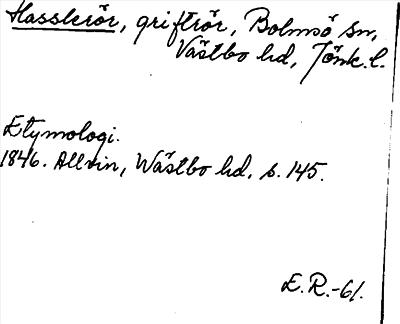 Hasslerör, griftrör, Bolmsö sn,
Västbo hd, Jönk. l.
Etymologi.
1846. Allvin, Wästbo hd, s. 145.
E.R.-61.